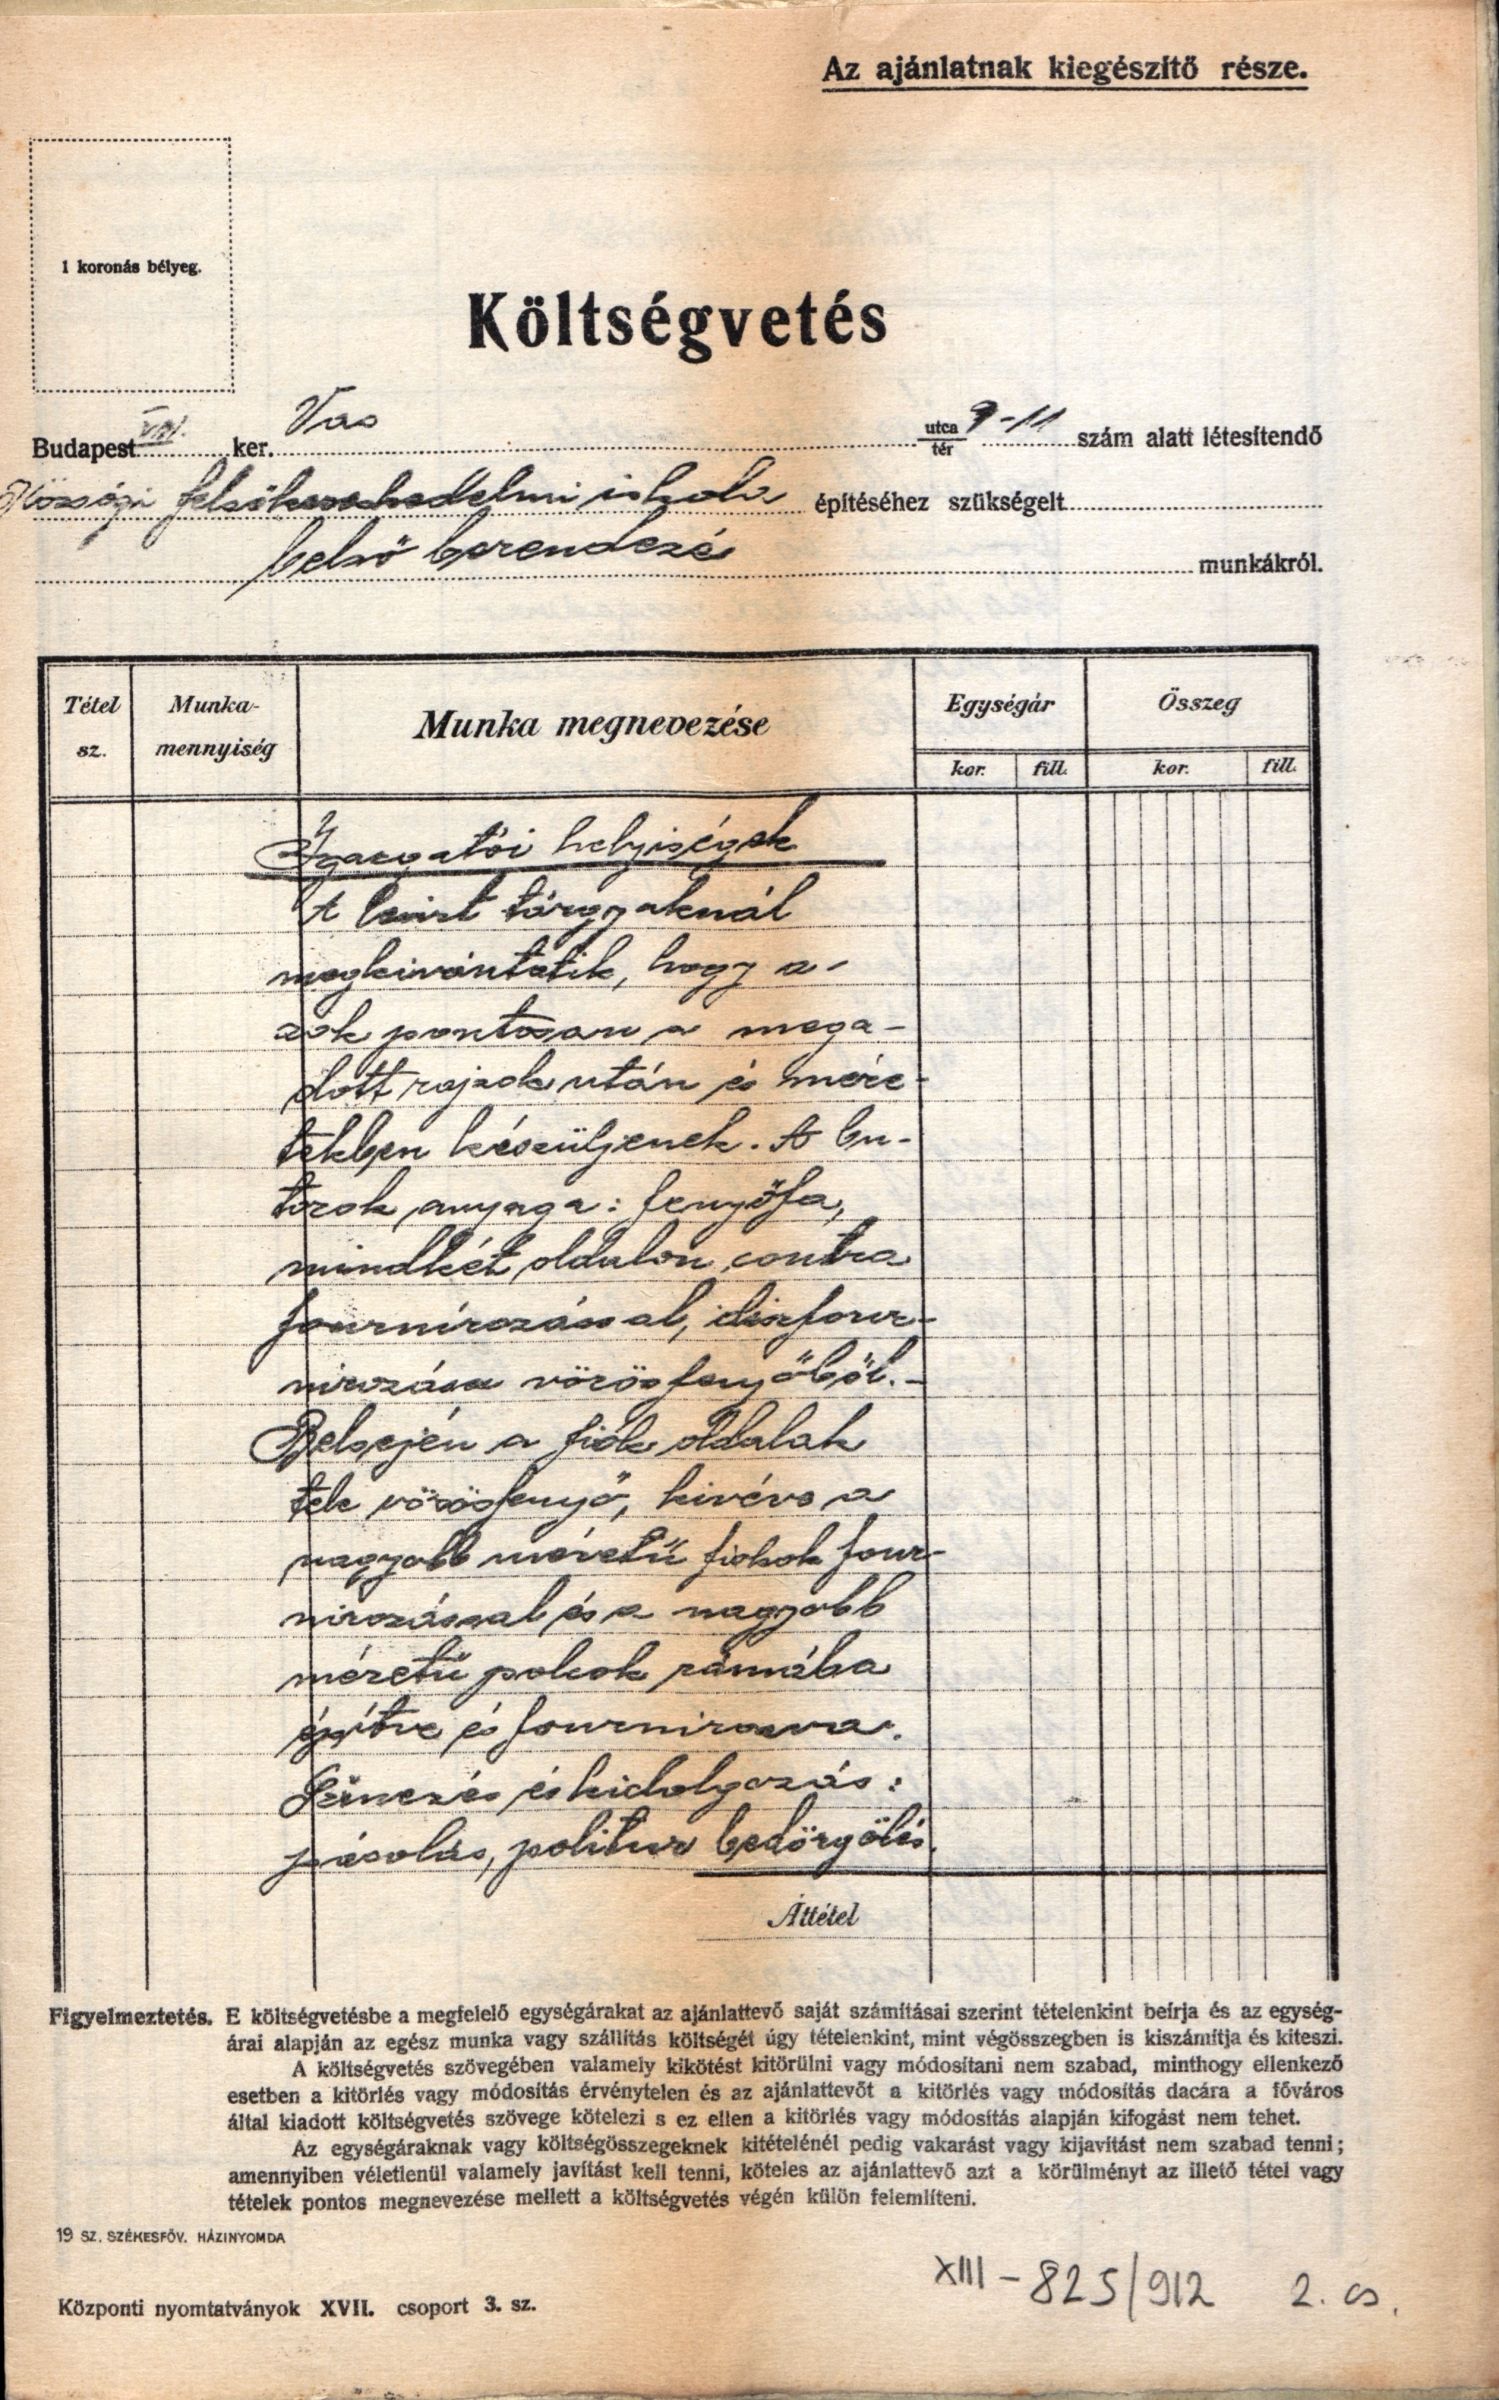 Az ajánlatnak kiegészítő része.
1 koronás bélyeg.
Költségvetés
Budapest VIII. ker. Vas utca tér 9-11 szám alatt létesítendő
Községi felsőkereskedelmi iskola építéséhez szükségelt
belső berendezé munkákról.
Tétel sz. Munka-mennyiség Munka megnevezése Egységár Összeg
kor. fill. kor. fill.
Igazgatói helyiségek
A leirt tárgyaknál
megkivántatik, hogy a-
zok pontosan a mega-
dott rajzok után és mére-
tekben készüljenek. A bu-
torok anyaga: fenyőfa,
mindkét oldalon contra
fournirozással, diszfour-
nirozása vörösfenyőből.-
Belsején a fiók oldalak
tele vörösfenyő, kivéve a
nagyobb méretű fiokok four-
nirozással és a nagyobb
méretű polcok rámába
épitve és fournirozva.
Szinezés és kidolgozás:
pácolás, politur bedörgölés.
Áttétel
Figyelmeztetés. E költségvetésbe a megfelelő egységárakat az ajánlattevő saját számításai szerint tételenkint beírja és az egység-
árai alapján az egész munka vagy szállítás költségét úgy tételenkint, mint végösszegben is kiszámítja és kiteszi.
A költségvetés szövegében valamely kikötést kitörülni vagy módosítani nem szabad, minthogy ellenkező
esetben a kitörlés vagy módosítás érvénytelen és az ajánlattevőt a kitörlés vagy módosítás dacára a főváros
által kiadott költségvetés szövege kötelezi s ez ellen a kitörlés vagy módosítás alapján kifogást nem tehet.
Az egységáraknak vagy költségösszegeknek kitételénél pedig vakarást vagy kijavítást nem szabad tenni;
amennyiben véletlenül valamely javítást kell tenni, köteles az ajánlattevő azt a körülményt az illető tétel vagy
tételek pontos megnevezése mellett a költségvetés végén külön felemlíteni.
19 SZ. SZÉKESFŐV. HÁZINYOMDA
XIII - 825/912 2. cs.
Központi nyomtatványok XVII. csoport 3. sz.